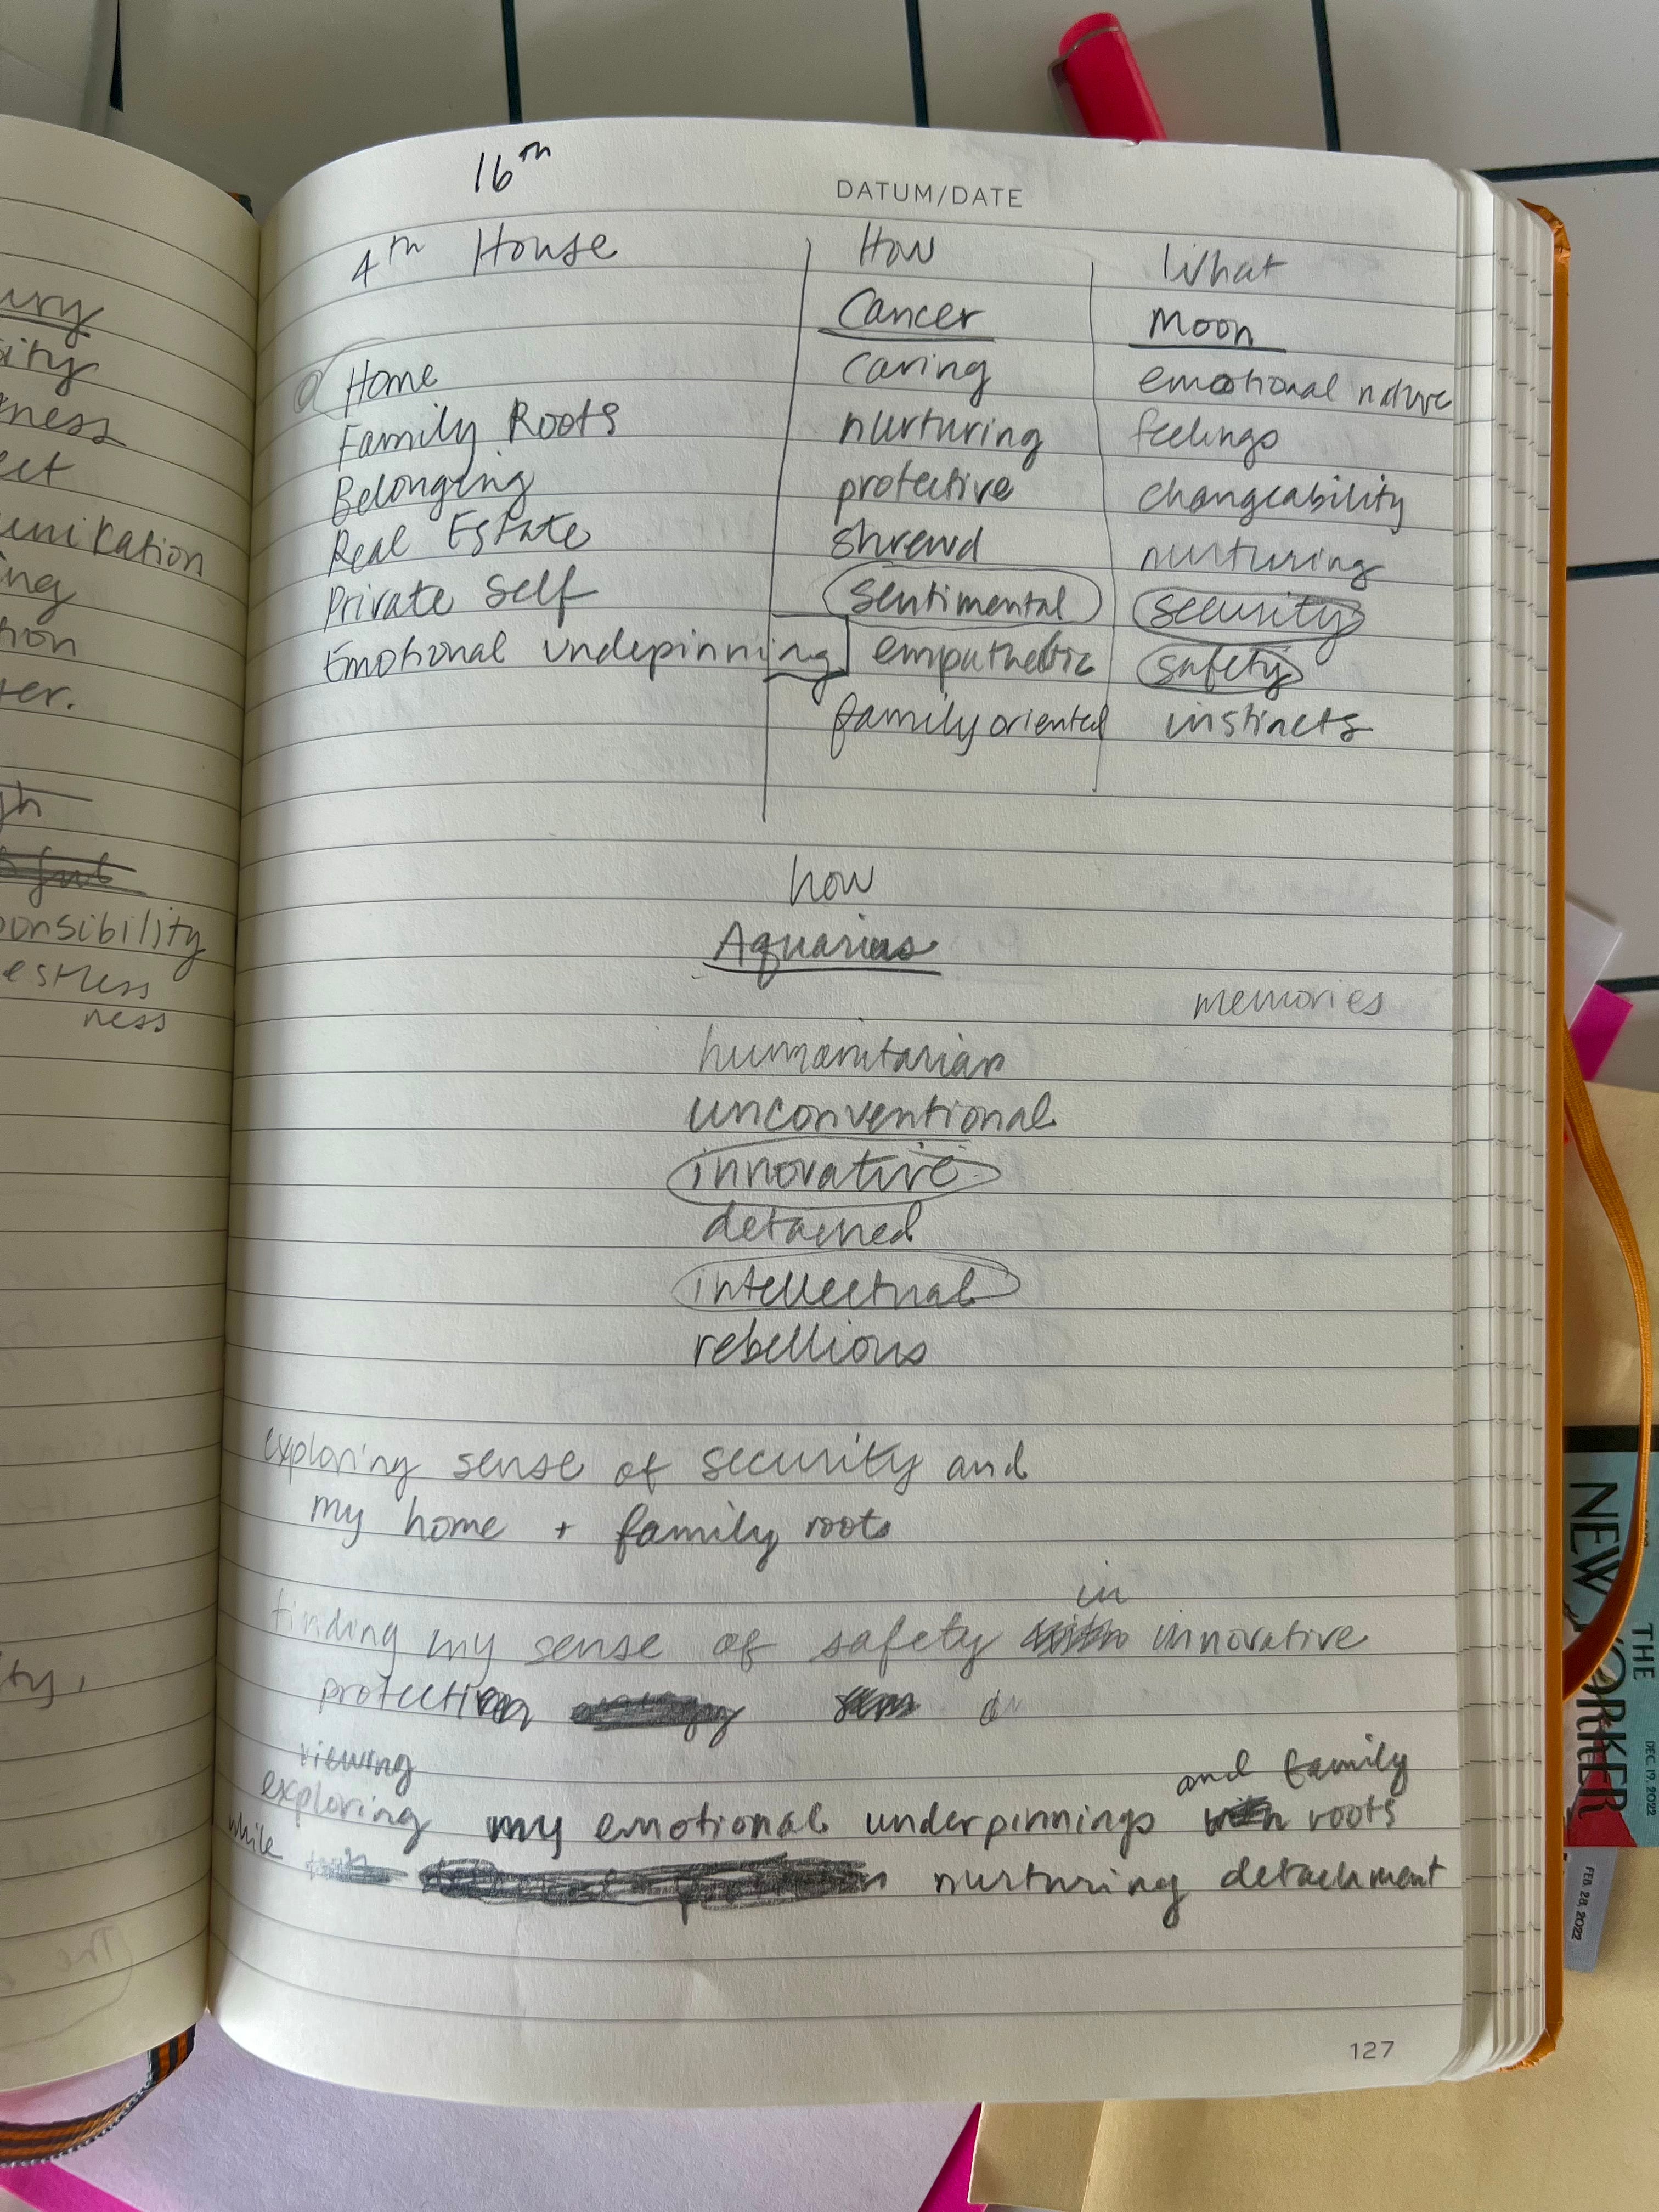 16th
DATUM/DATE
4th House
How
What
Cancer
Moon
Home
caring
emotional nature
Family Roots
nurturing
feelings
Belonging
protective
changeability
Real Estate
shrewd
nurturing
Private Self
sentimental
security
Emotional undepinning
empathetic
safety
family oriented
instincts
how
Aquarius
memories
humanitarian
unconventional
innovative
detached
intellectual
rebellious
exploring sense of security and
my home + family roots
in
finding my sense of safety innovative
protection
viewing
and family
exploring my emotional underpinnings roots
while nurturing detachment
127
ury
sity
ness
ect
unikation
ing
tion
ter.
gh
ful
ponsibility
estless
ness
ty,
THE
NEW YORKER
DEC. 19, 2022
FEB. 28, 2022